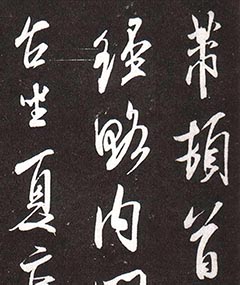 芾頓首
經略内
台坐夏